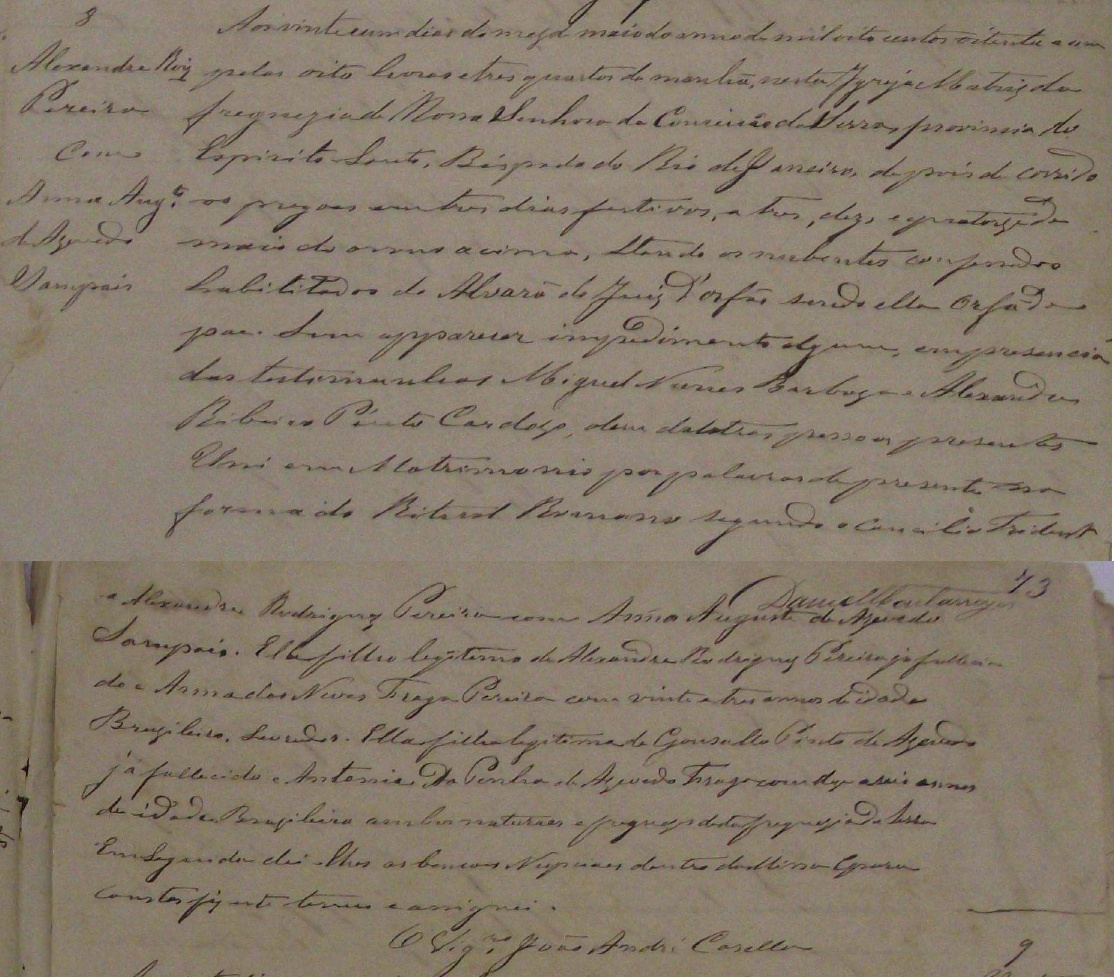 8
Alexandre Roiz
Pereira
com
Anna Aug.ta
de Azevedo
Sampaio
Aos vinte e um dias do mez de maio do anno de mil oito centos oitenta e um
pelas oito horas e tres quartos da manhã, nesta Igreja Matriz da
freguezia de Nossa Senhora da Conceição da Serra, provincia do
Espirito Santo, Bispado do Rio de Janeiro, depois de corrido
os pregoes em tres dias festivos, a tres, dez, e quatorze de
maio do anno acima, stando os nubentes confessados
habilitados de Alvará do Juiz d'orfãos sendo ella Orfã de
pae. Sem apparecer impedimento algum, em presencia
das testemunhas Miguel Nunes Barboza e Alexandre
Ribeiro Pinto Cardozo, alem de outras pessoas presentes
Uni em Matrimonio por palavras de presente na
forma do Ritual Romano segundo o Concilio Trident
73
a Alexandre Rodrigues Pereira com Anna Augusta de Azevedo
Sampaio. Elle filho legitimo de Alexandre Rodrigues Pereira ja falleci
do e Anna das Neves Fraga Pereira com vinte e tres annos de idade
Brazileiro, Lavrador. Ella filha legitima de Gonsallo Pinto de Azevedo
já fallecido e Antonia Da Penha de Azevedo Fraga com dez a seis annos
de idade Brazileira ambos naturaes e freguezes desta freguezia da Serra
Em Seguida dei-lhes as bencoes Nupciaes dentro da Missa E para
constar fiz este termo e assignei.
O Vig.ro João André Casella
9